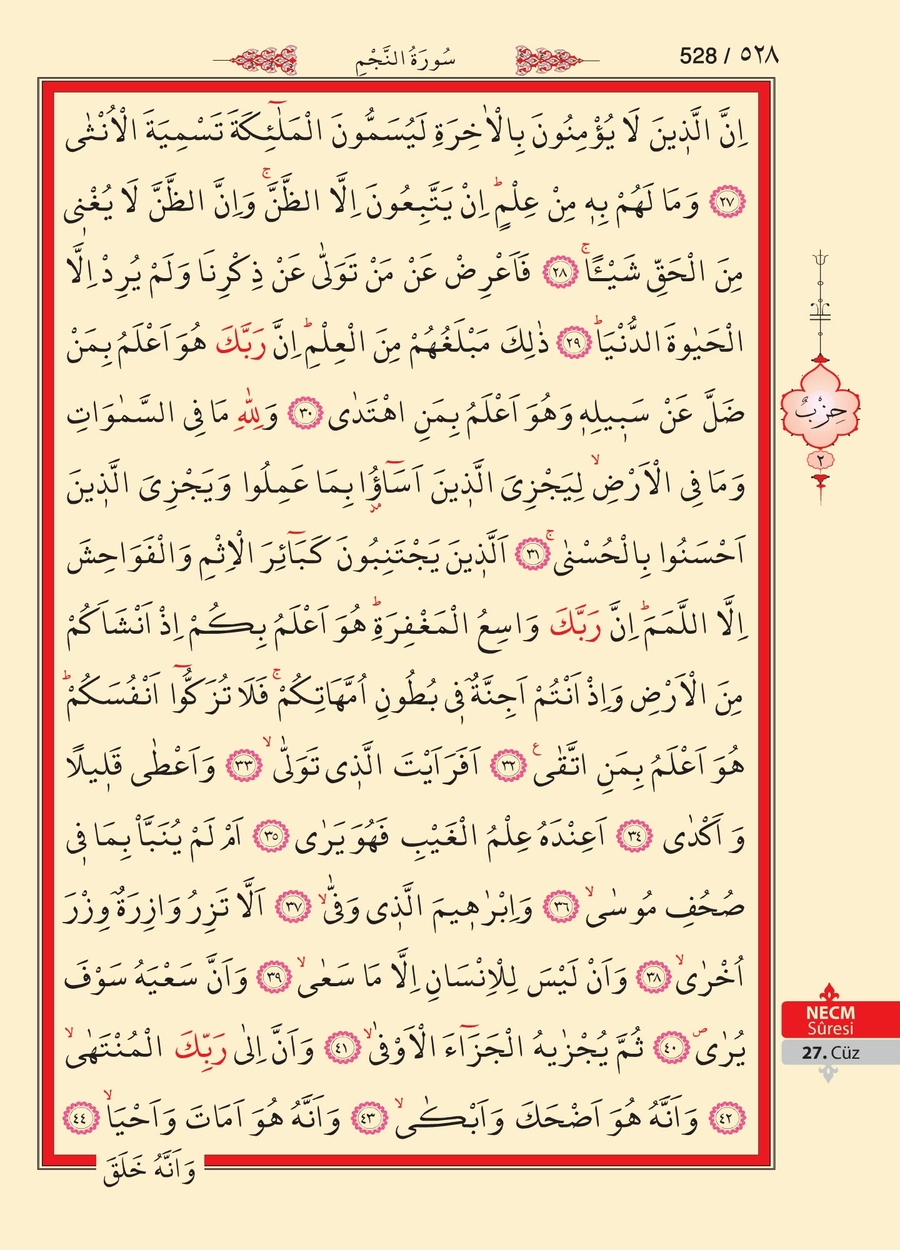 سُورَةُ النَّجْمِ
528 / ٥٢٨
اِنَّ الَّذ۪ينَ لَا يُؤْمِنُونَ بِالْاٰخِرَةِ لَيُسَمُّونَ الْمَلٰٓئِكَةَ تَسْمِيَةَ الْاُنْثٰى
﴿٢٧﴾ وَمَا لَهُمْ بِه۪ مِنْ عِلْمٍۜ اِنْ يَتَّبِعُونَ اِلَّا الظَّنَّۚ وَاِنَّ الظَّنَّ لَا يُغْن۪ي
مِنَ الْحَقِّ شَيْـًٔاۚ ﴿٢٨﴾ فَاَعْرِضْ عَنْ مَنْ تَوَلّٰى عَنْ ذِكْرِنَا وَلَمْ يُرِدْ اِلَّا
الْحَيٰوةَ الدُّنْيَاۜ ﴿٢٩﴾ ذٰلِكَ مَبْلَغُهُمْ مِنَ الْعِلْمِۜ اِنَّ رَبَّكَ هُوَ اَعْلَمُ بِمَنْ
ضَلَّ عَنْ سَب۪يلِه۪ وَهُوَ اَعْلَمُ بِمَنِ اهْتَدٰى ﴿٣٠﴾ وَلِلّٰهِ مَا فِي السَّمٰوَاتِ
وَمَا فِي الْاَرْضِۙ لِيَجْزِيَ الَّذ۪ينَ اَسَٓاؤُ۫ا بِمَا عَمِلُوا وَيَجْزِيَ الَّذ۪ينَ
اَحْسَنُوا بِالْحُسْنٰىۚ ﴿٣١﴾ اَلَّذ۪ينَ يَجْتَنِبُونَ كَبَٓائِرَ الْاِثْمِ وَالْفَوَاحِشَ
اِلَّا اللَّمَمَۜ اِنَّ رَبَّكَ وَاسِعُ الْمَغْفِرَةِۜ هُوَ اَعْلَمُ بِكُمْ اِذْ اَنْشَاَكُمْ
مِنَ الْاَرْضِ وَاِذْ اَنْتُمْ اَجِنَّةٌ ف۪ي بُطُونِ اُمَّهَاتِكُمْۚ فَلَا تُزَكُّٓوا اَنْفُسَكُمْۜ
هُوَ اَعْلَمُ بِمَنِ اتَّقٰى۟ ﴿٣٢﴾ اَفَرَاَيْتَ الَّذ۪ي تَوَلّٰىۙ ﴿٣٣﴾ وَاَعْطٰى قَل۪يلًا
وَ اَكْدٰى ﴿٣٤﴾ اَعِنْدَهُ عِلْمُ الْغَيْبِ فَهُوَ يَرٰى ﴿٣٥﴾ اَمْ لَمْ يُنَبَّأْ بِمَا ف۪ي
صُحُفِ مُوسٰىۙ ﴿٣٦﴾ وَاِبْرٰه۪يمَ الَّذ۪ي وَفّٰىۙ ﴿٣٧﴾ اَلَّا تَزِرُ وَازِرَةٌ وِزْرَ
اُخْرٰىۙ ﴿٣٨﴾ وَاَنْ لَيْسَ لِلْاِنْسَانِ اِلَّا مَا سَعٰىۙ ﴿٣٩﴾ وَاَنَّ سَعْيَهُ سَوْفَ
يُرٰىۖ ﴿٤٠﴾ ثُمَّ يُجْزٰيهُ الْجَزَٓاءَ الْاَوْفٰىۙ ﴿٤١﴾ وَاَنَّ اِلٰى رَبِّكَ الْمُنْتَهٰىۙ
﴿٤٢﴾ وَاَنَّهُ هُوَ اَضْحَكَ وَاَبْكٰىۙ ﴿٤٣﴾ وَاَنَّهُ هُوَ اَمَاتَ وَاَحْيَاۙ ﴿٤٤﴾
وَاَنَّهُ خَلَقَ
حِزْبٌ
٢
NECM
Sûresi
27. Cüz